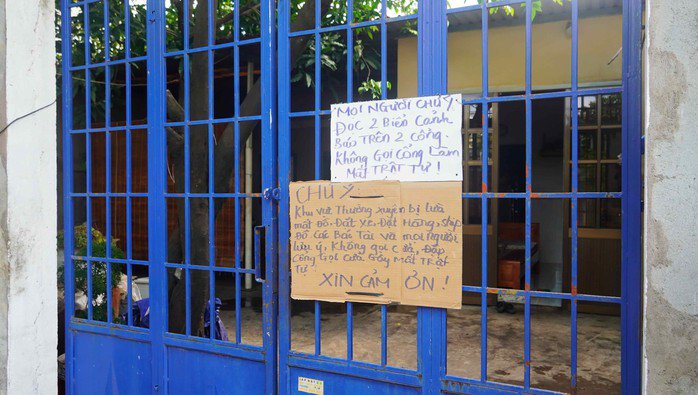 MỌI NGƯỜI CHÚ Ý
ĐỌC 2 BIỂN CẢNH
BÁO TRÊN 2 CỔNG
KHÔNG GỌI CỔNG LÀM
MẤT TRẬT TỰ !
CHÚ Ý
Khu vực Thường xuyên bị lừa
mất đồ, Đặt Xe, Đặt Hàng, ship
Đồ Các Bác Tài và mọi người
lưu ý, Không gọi cửa, Đập
Cổng Gọi cửa Gây Mất Trật
Tự
XIN CẢM ƠN !